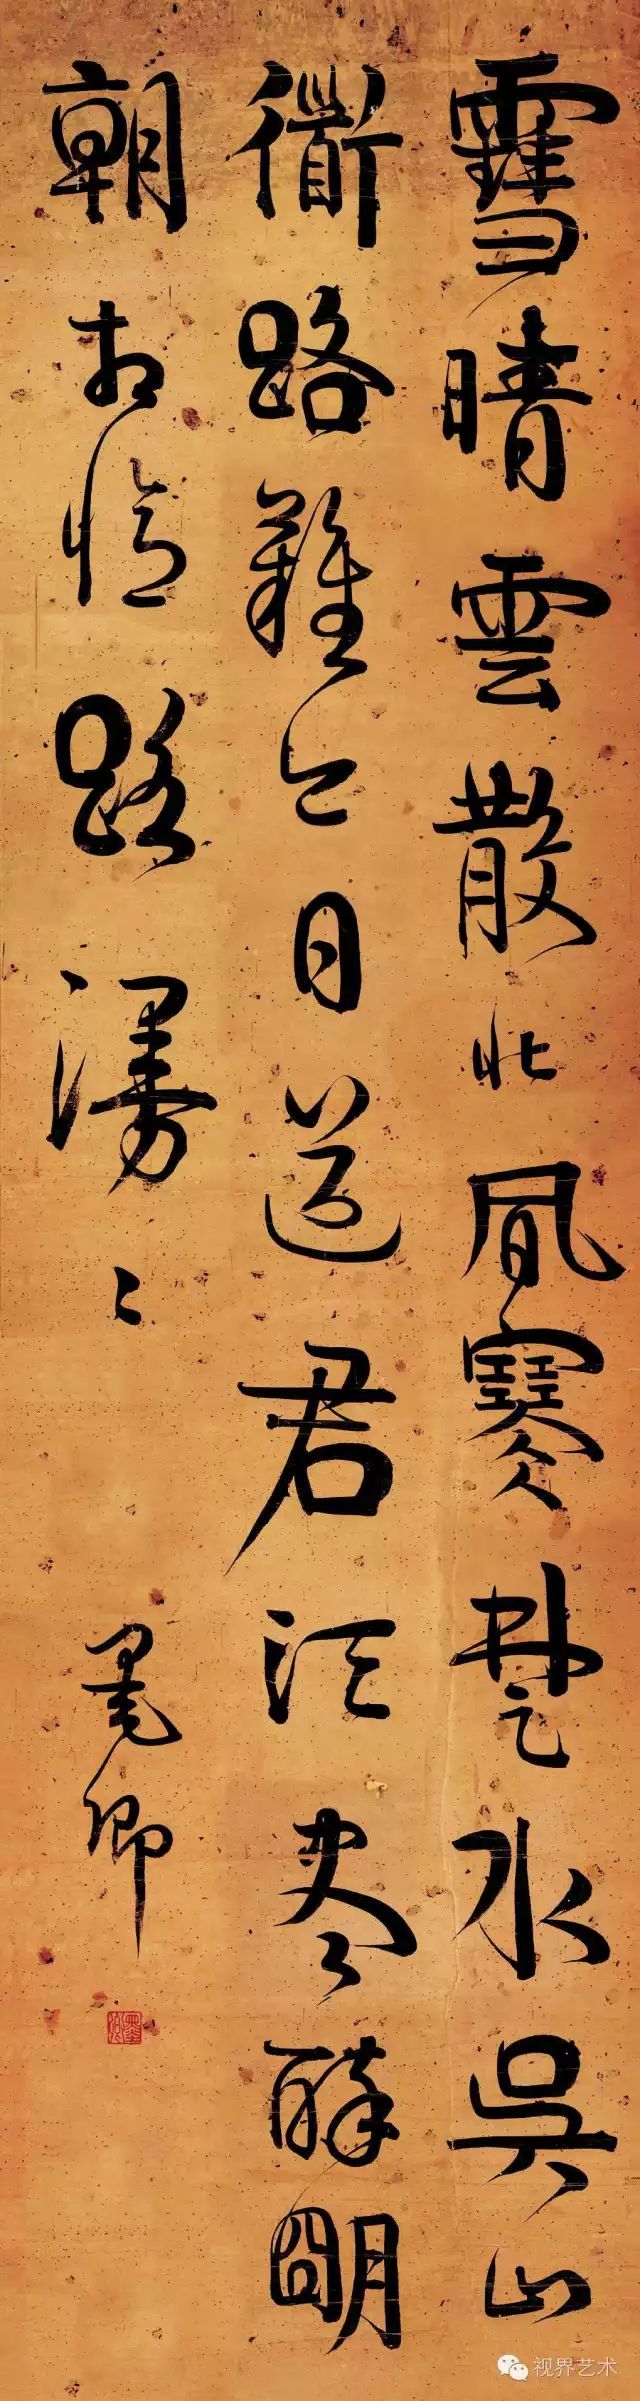 雪晴雲散北風寒楚水吳山
衜路難今日送君須盡醉朙
朝相憶路漫〻
墨卿
视界艺术